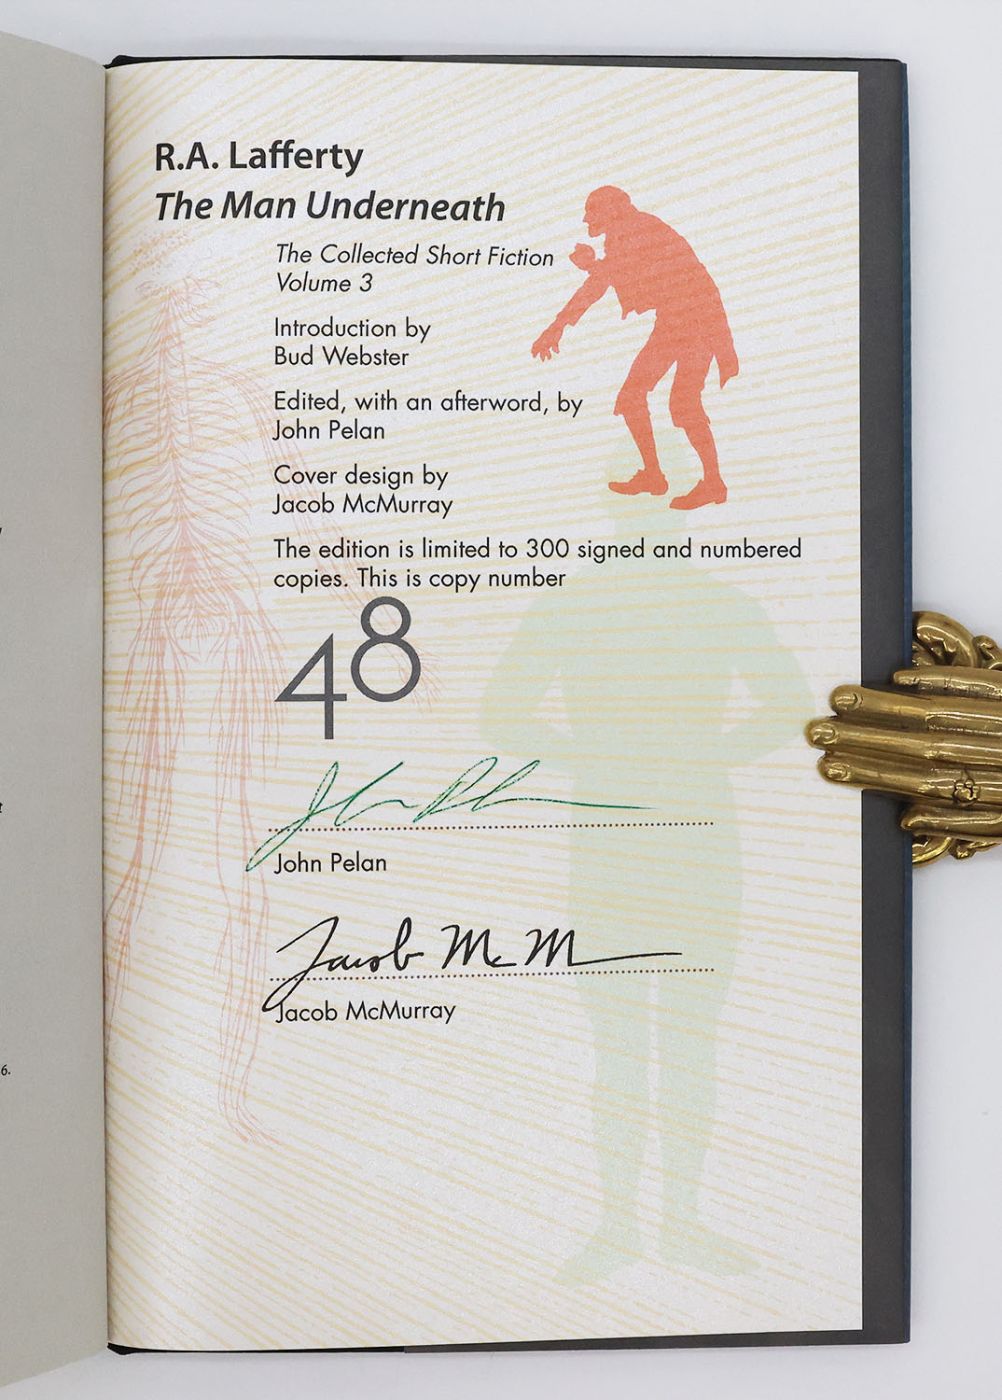 R.A. Lafferty
The Man Underneath
The Collected Short Fiction
Volume 3
Introduction by
Bud Webster
Edited, with an afterword, by
John Pelan
Cover design by
Jacob McMurray
The edition is limited to 300 signed and numbered
copies. This is copy number
48
John Pelan
Jacob McM
Jacob McMurray
6.